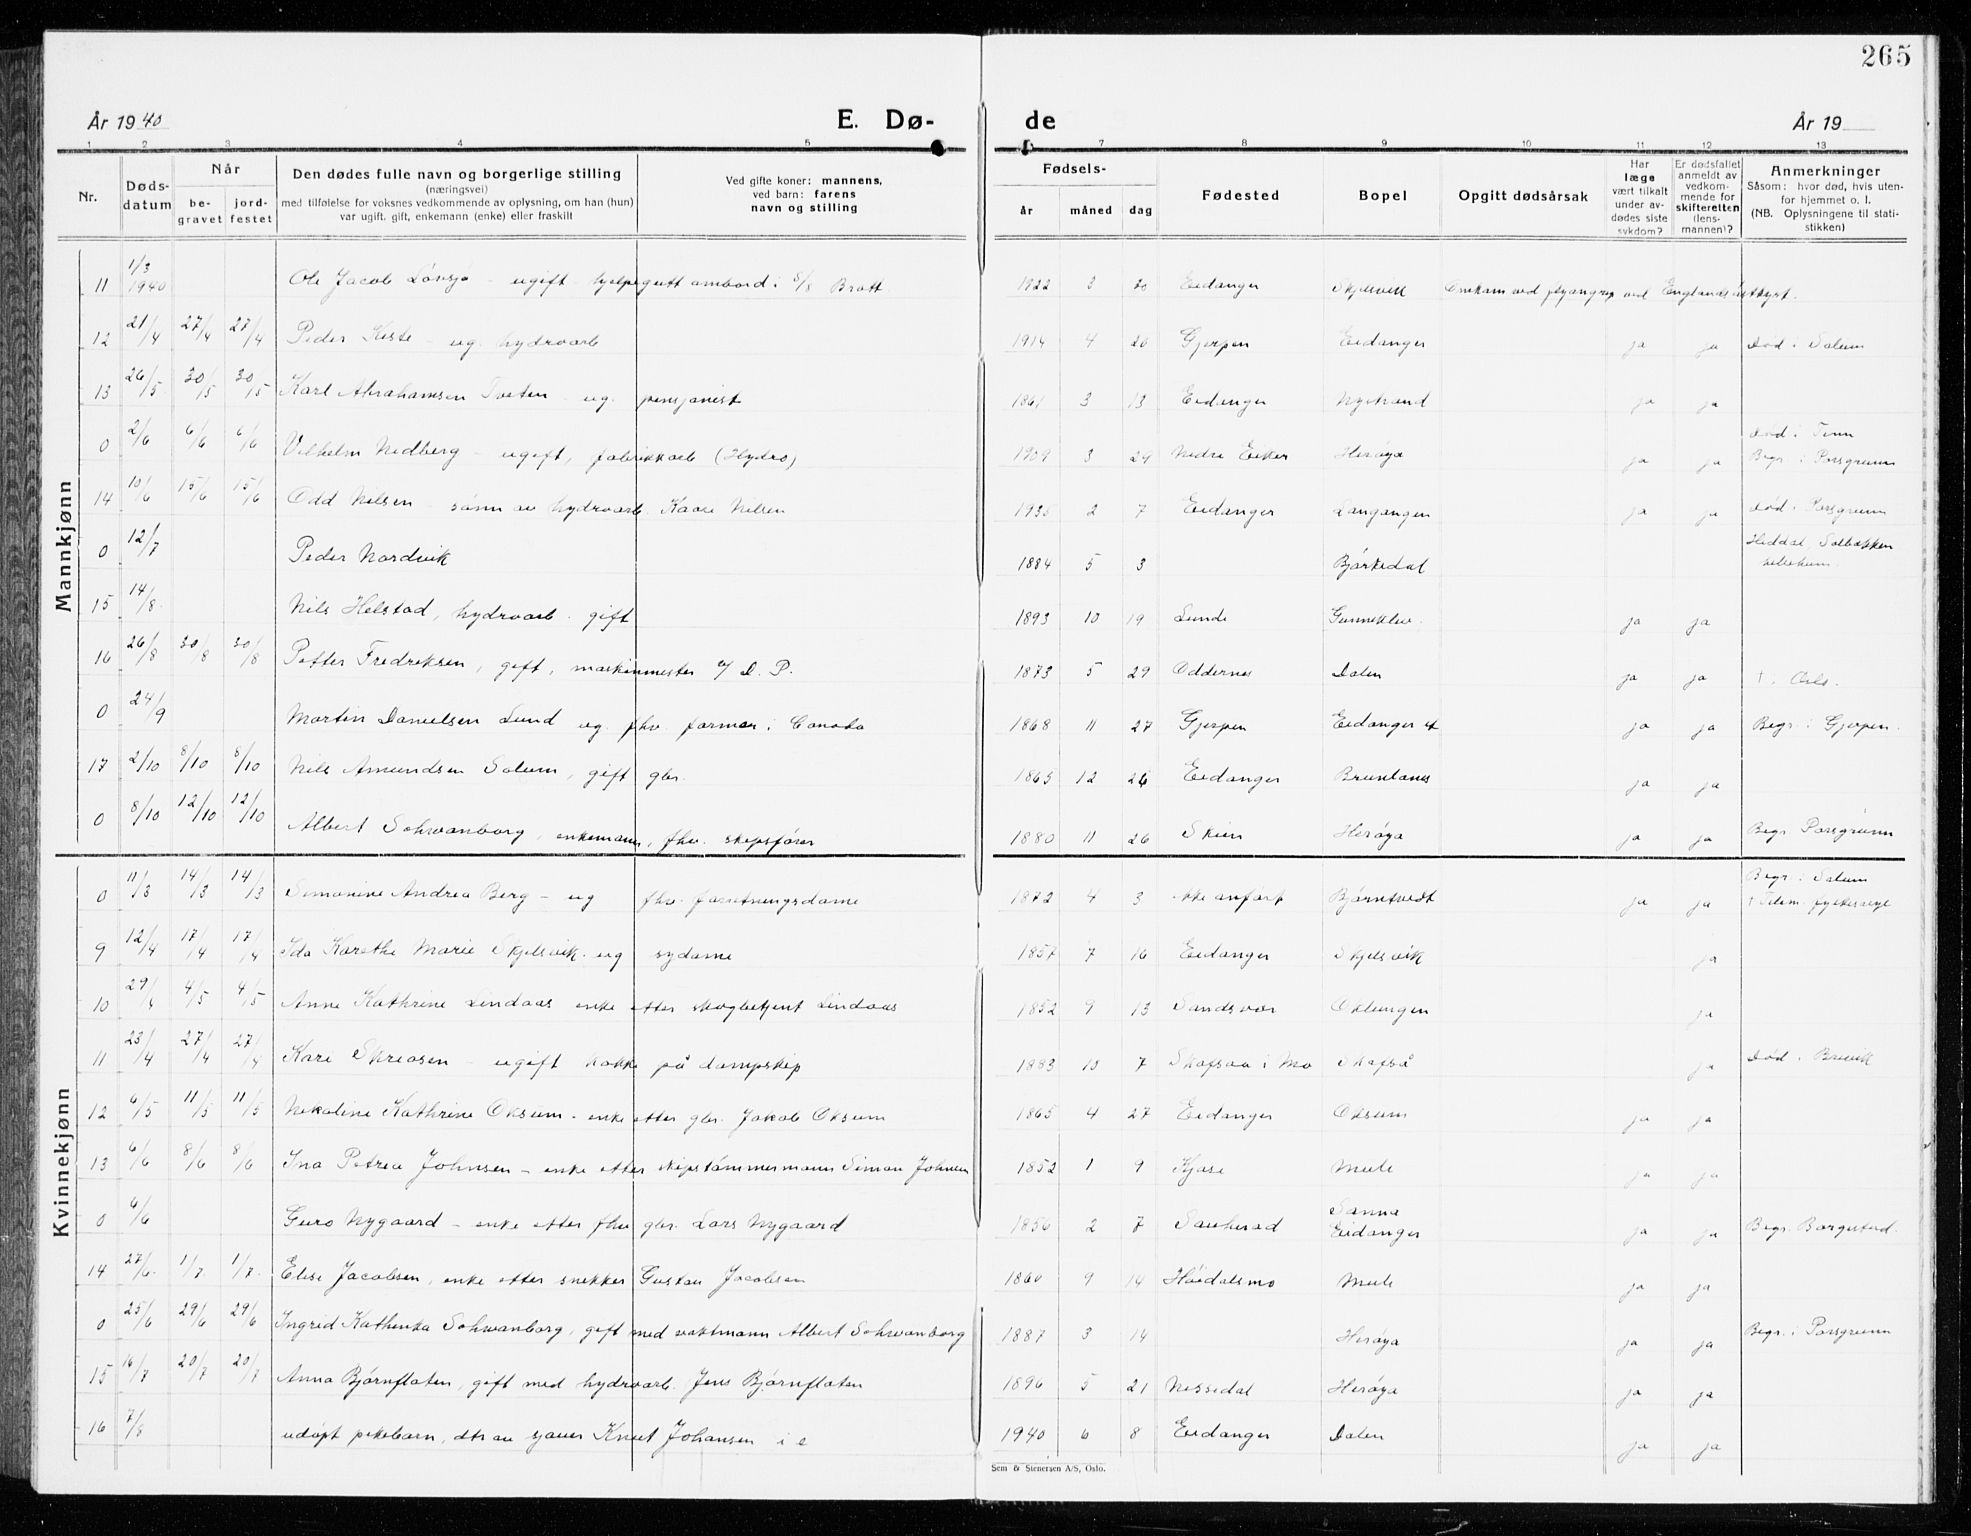 265
År 1940 E. Dø- de År 19
1 2 3 4 5 7 8 9 10 11 12 13
Nr. Døds-datum Når be-gravet jord-festet
Den dødes fulle navn og borgerlige stilling
(næringsvei)
med tilføielse for voksnes vedkommende av oplysning, om han (hun)
var ugift, gift, enkemann (enke) eller fraskilt
Ved gifte koner: mannens,
ved barn: farens
navn og stilling
Fødsels-
år måned dag
Fødested Bopel Opgitt dødsårsak
Har læge vært tilkalt under av-dødes siste sykdom?
Er dødsfallet anmeldt av vedkom-mende for skifteretten (lens-mannen)?
Anmerkninger
Såsom: hvor død, hvis uten-
for hjemmet o. l.
(NB. Oplysningene til stati-
stikken)
Mannkjønn
11 1/3 1940 Ole Jacob Lövsjö - ugift - hjelpegutt ombord i S/S Bratt 1922 3 20 Eidanger Skjelsvik Omkom ved flyangrep ved Englands östkyst.
12 21/4 27/4 27/4 Peder Kiste - ug. hydroarb 1914 4 20 Gjerpen Eidanger ja ja Död i Solum
13 26/5 30/5 30/5 Karl Abrahamsen Tveten - ug. pensjonist 1861 3 13 Eidanger Nystrand ja ja
0 2/6 6/6 6/6 Vilhelm Nedberg - ugift, fabrikkarb (Hydro) 1909 3 24 Nedre Eiker Heröya ja ja Död i Tinn Begr. i Porsgrunn
14 10/6 15/6 15/6 Odd Nilsen - sönn av hydroarb. Kaare Nilsen 1935 2 7 Eidanger Langangen ja ja Död i Porsgrunn
0 12/7 Peder Nordvik 1884 5 3 Björkedal Heddal, Solbakken
15 14/8 Nils Helstad, hydroarb. gift 1893 10 19 Lunde Gunneklev. ja ja
16 26/8 30/8 30/8 Petter Fredriksen, gift, maskinmester a/ D. P. 1873 5 29 Oddernes Dalen ja ja † i Oslo.
0 24/9 Martin Danielsen Lund ug. fhv. farmer i Canada 1868 11 27 Gjerpen Eidanger ja ja Begr. i Gjerpen.
17 2/10 8/10 8/10 Nils Amundsen Solum, gift gbr. 1865 12 26 Eidanger Brunlanes ja ja
0 8/10 12/10 12/10 Albert Schwanborg, enkemann, fhv. skipsförer 1880 11 26 Skien Heröya ja ja Begr Porsgrunn
Kvinnekjønn
0 11/3 14/3 14/3 Simonine Andrea Berg - ug fhv. forretningsdame 1872 4 3 ikke anfört Björntvedt ja ja Begr. i Solum † Telem. fylkessyk
9 12/4 17/4 17/4 Ida Karethe Marie Skjelsvik - ug sydame 1857 7 16 Eidanger Skjelsvik ja
10 29/4 4/5 4/5 Anne Kathrine Lindaas enke etter skogbetjent Lindaas 1852 9 13 Sandsvær Oklungen ja
11 23/4 27/4 27/4 Kari Skreosen - ugift kokke på dampskip 1883 10 7 Skafsaa i Mo Skafså ja Död i Brevik
12 6/5 11/5 11/5 Nikoline Kathrine Oksum - enke etter gbr. Jakob Oksum 1865 4 27 Eidanger Oksum ja ja
13 6/6 8/6 8/6 Ina Petrea Johnsen - enke etter skipstömmermann Simon Johnsen 1852 1 9 Kjose Mule ja ja
0 6/6 Guro Nygaard - enke etter fhv gbr. Lars Nygaard 1856 2 7 Sauherad Sanna Eidanger ja ja Begr. Borgestad.
14 27/6 1/7 1/7 Elise Jacobsen, enke etter snekker Gustav Jacobsen 1860 9 14 Höidalsmo Mule ja ja
0 25/6 29/6 29/6 Ingrid Kathinka Schwanborg, gift med vaktmann Albert Schwanborg 1887 3 14 Heröya ja ja Begr. i Porsgrunn
15 16/7 20/7 20/7 Anna Björnflaten, gift med hydroarb. Jens Björnflaten 1896 5 21 Nissedal Heröya ja ja
16 7/8 udöpt pikebarn, dtr av Knut Johansen 1940 6 8 Eidanger Dalen ja ja
Sem & Stenersen A/S, Oslo.